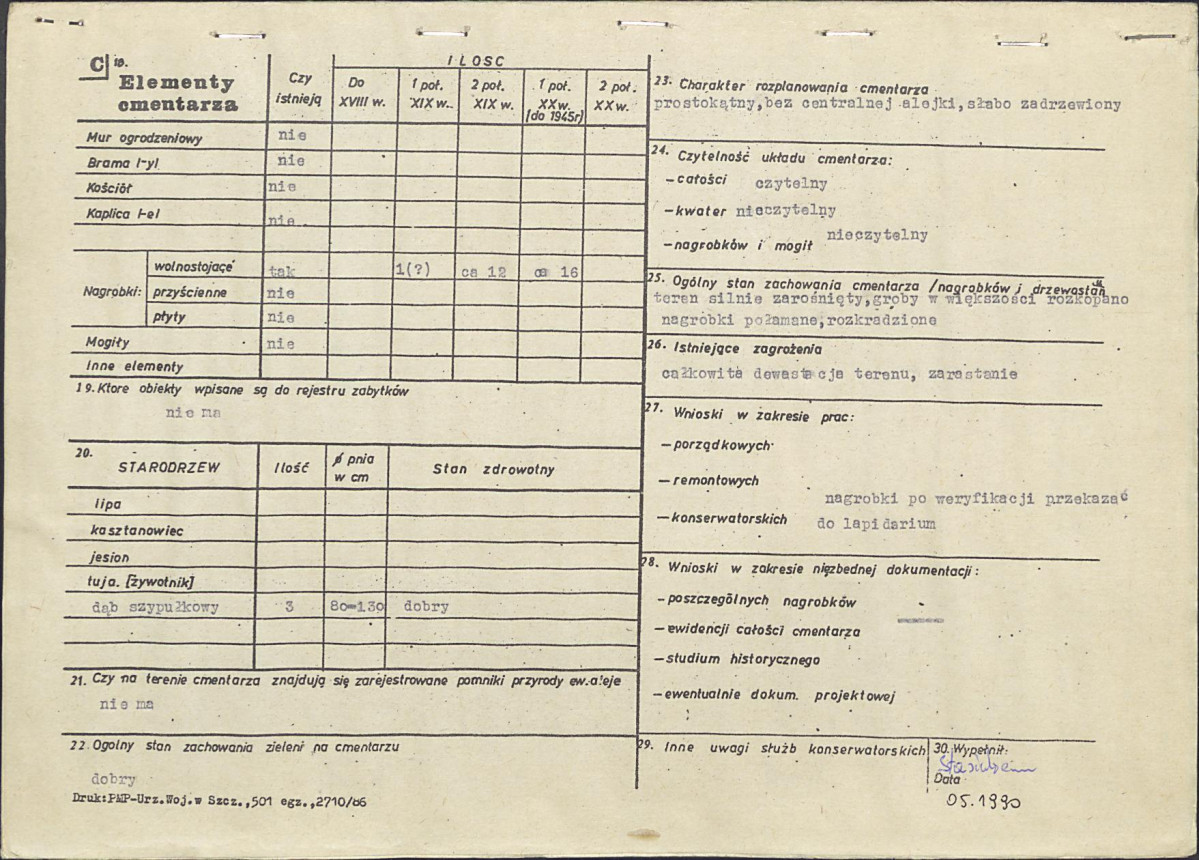 C 18.
Elementy
cmentarza
Czy
istnieją
ILOSC
Do
XVIII w.
1 poł.
XIX w.
2 poł.
XIX w.
1 poł.
XX w.
[do 1945r]
2 poł.
XX w.
Mur ogrodzeniowy nie
Brama /-y/ nie
Kościół nie
Kaplica /-e/ nie
Nagrobki:
wolnostojące tak 1(?) ca 12 ca 16
przyścienne nie
płyty nie
Mogiły nie
Inne elementy
19. Ktore obiekty wpisane są do rejestru zabytków
nie ma
20.
STARODRZEW Ilość ø pnia
w cm Stan zdrowotny
lipa
kasztanowiec
jesion
tuja. [żywotnik]
dąb szypułkowy 3 80-130 dobry
21. Czy na terenie cmentarza znajdują się zarejestrowane pomniki przyrody ew. aleje
nie ma
22. Ogolny stan zachowania zieleni na cmentarzu
dobry
Druk:PMP-Urz.Woj.w Szcz.,501 egz.,2710/86
23. Charakter rozplanowania cmentarza
prostokątny,bez centralnej alejki,słabo zadrzewiony
24. Czytelność układu cmentarza:
-całości czytelny
-kwater nieczytelny
-nagrobków i mogił nieczytelny
25. Ogólny stan zachowania cmentarza /nagrobków i drzewostan
teren silnie zarośnięty,groby w większości rozkopano
nagrobki połamane,rozkradzione
26. Istniejące zagrożenia
całkowita dewastacja terenu, zarastanie
27. Wnioski w zakresie prac:
-porządkowych
-remontowych
-konserwatorskich nagrobki po weryfikacji przekazać
do lapidarium
28. Wnioski w zakresie niezbednej dokumentacji:
-poszczególnych nagrobków
-ewidencji całości cmentarza
-studium historycznego
-ewentualnie dokum. projektowej
29. Inne uwagi służb konserwatorskich
30. Wypełnił:
Data
05.1990